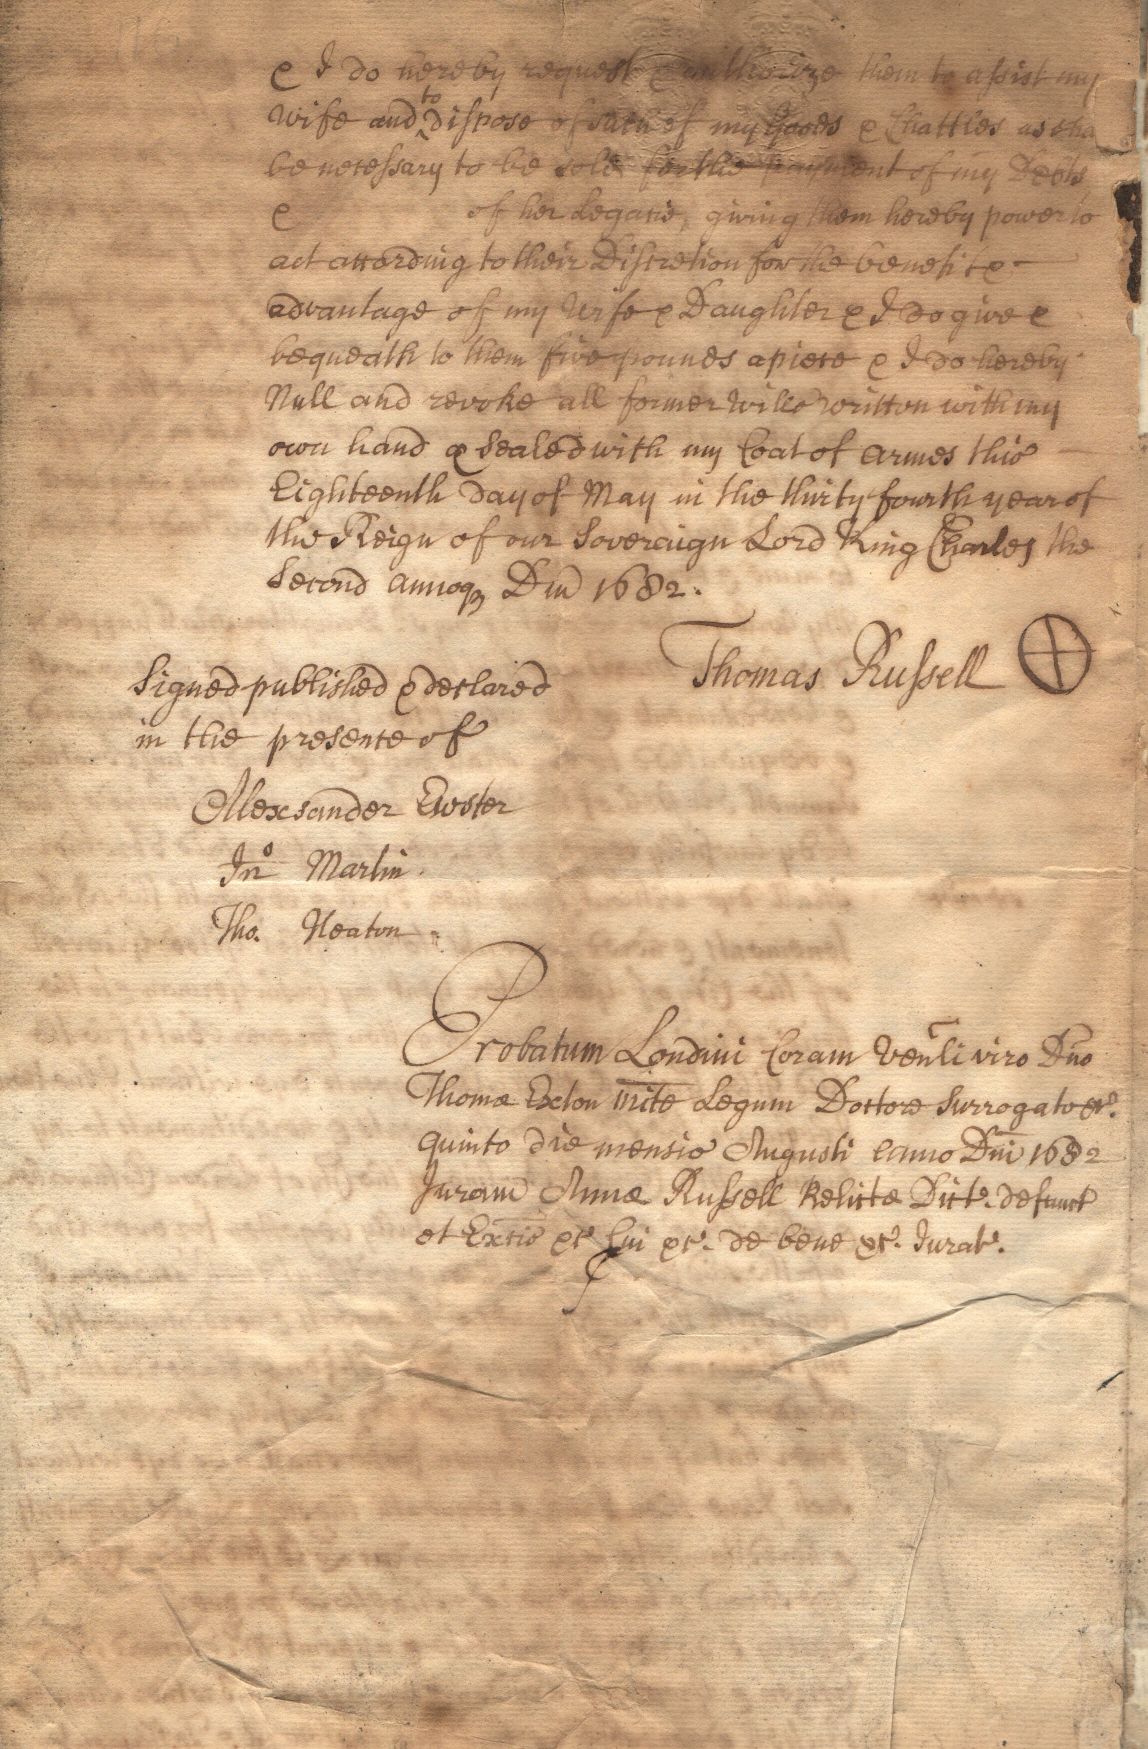 & I do hereby request & authorize them to assist my
Wife and to dispose of such of my Goods & Chattles as sha
be necessary to be sold for the payment of my Debts
& of her Legacie, giving them hereby power to
act according to their Discretion for the benefit &
advantage of my Wife & Daughter & I do give &
bequeath to them five pounds apiece & I do hereby
Null and revoke all former Wills written with my
own hand & Sealed with my Coat of Armes this
Eighteenth day of May in the thirty fourth year of
the Reign of our Soveraign Lord King Charles the
Second Annoq Dni 1682.
Thomas Russell
Signed published & declared
in the presence of
Alexsander Ewster
Jno Martin
Tho. Neaton
Probatum Londini Coram Venli viro Dno
Thomæ Exton milte Legum Doctore Surrogato &c.
quinto die mensis Augusti anno Dni 1682
Juram Annæ Russell Relictæ Dict. defunct
et Extis &c. Cui &c. de bene &c. Jurat.